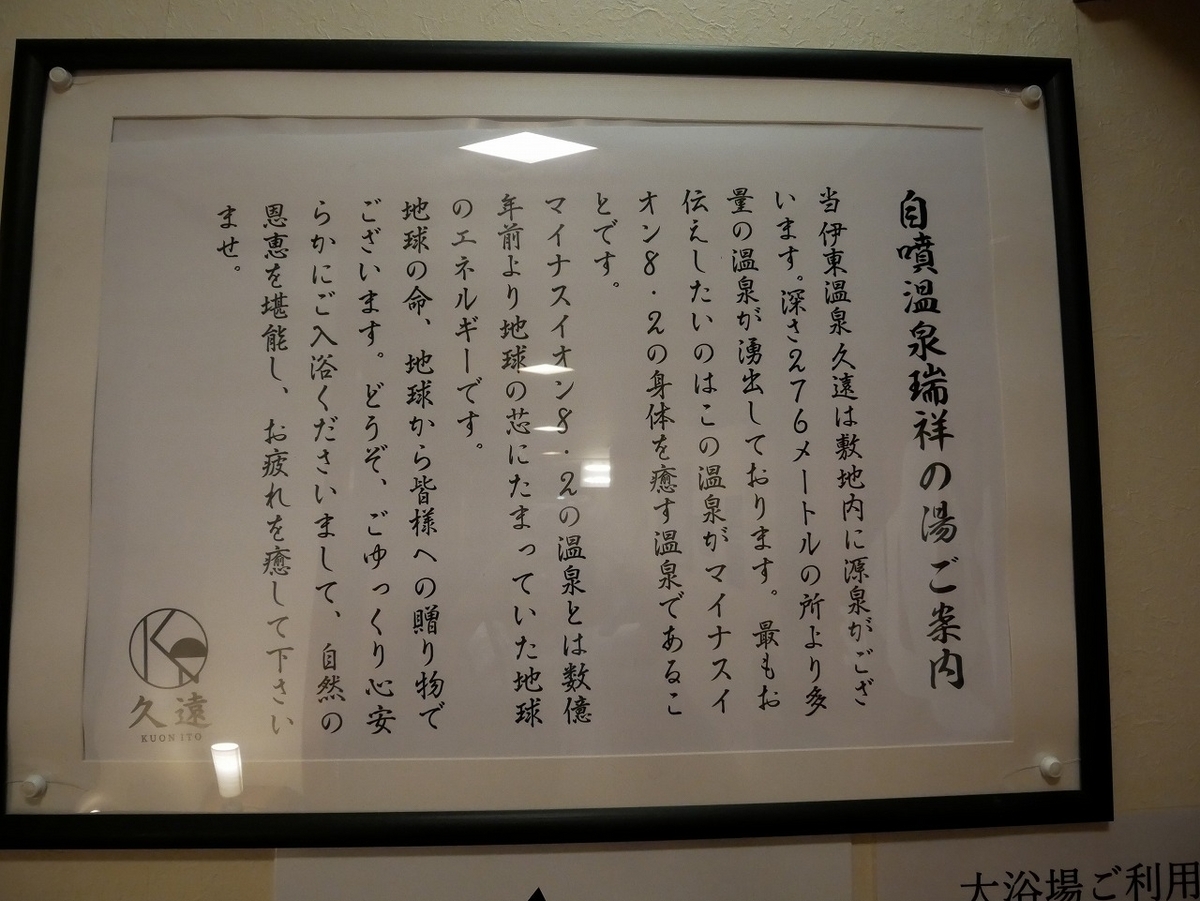 自噴温泉瑞祥の湯ご案内
当伊東温泉久遠は敷地内に源泉がござ
います。深さ276メートルの所より多
量の温泉が湧出しております。最もお
伝えしたいのはこの温泉がマイナスイ
オン8.2の身体を癒す温泉であるこ
とです。
マイナスイオン8.2の温泉とは数億
年前より地球の芯にたまっていた地球
のエネルギーです。
地球の命、地球から皆様への贈り物で
ございます。どうぞ、ごゆっくり心安
らかにご入浴くださいまして、自然の
恩恵を堪能し、お疲れを癒して下さい
ませ。
久遠
KUON ITO
大浴場ご利用